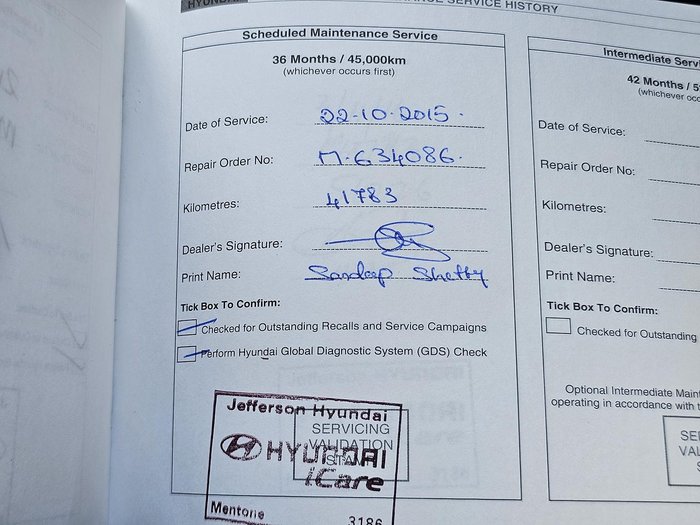 HYUNDAI
SERVICE HISTORY
Scheduled Maintenance Service
36 Months / 45,000km
(whichever occurs first)
Date of Service: 22-10-2015.
Repair Order No: M-634086.
Kilometres: 41783
Dealer's Signature:
Print Name: Sandeep Shetty
Tick Box To Confirm:
Checked for Outstanding Recalls and Service Campaigns
Perform Hyundai Global Diagnostic System (GDS) Check
Jefferson Hyundai
SERVICING
VALIDATION
STAMP
HYUNDAI
iCare
Mentone 3186
Intermediate
42 Months /
(whichever
Date of Service:
Repair Order No:
Kilometres:
Dealer's Signature:
Print Name:
Tick Box To Confirm:
Checked for Outstanding
Optional Intermediate
operating in accordance with